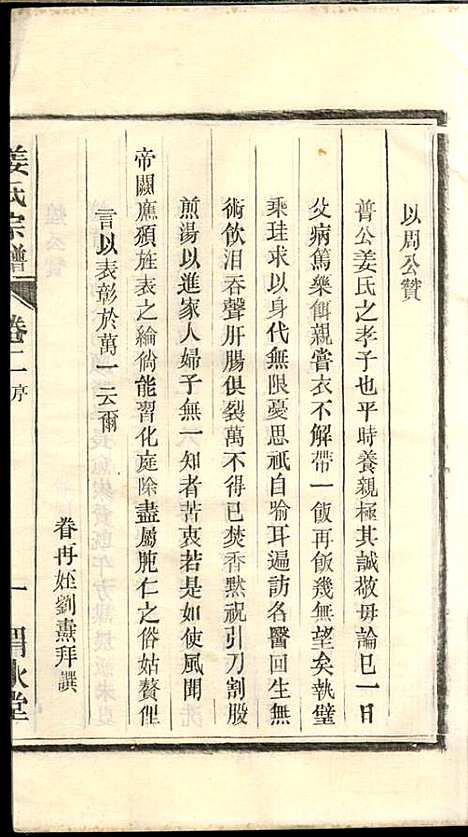 以周公贊
普公姜氏之孝子也平時養親極其誠敬毋論已一日
父病篤藥餌親嘗衣不解帶一飯再飯幾無望矣執璧
秉珪求以身代無限憂思祇自喻耳遍訪名醫回生無
術飲泪吞聲肝腸俱裂萬不得已焚香默祝引刀割股
煎湯以進家人婦子無一知者苦衷若是如使風聞
帝闕應頒旌表之綸倘能習化庭除盡屬肫仁之俗姑贅俚
言以表彰於萬一云爾
眷再姪劉燾拜譔
姜氏宗譜
卷二
序
一
渭水堂